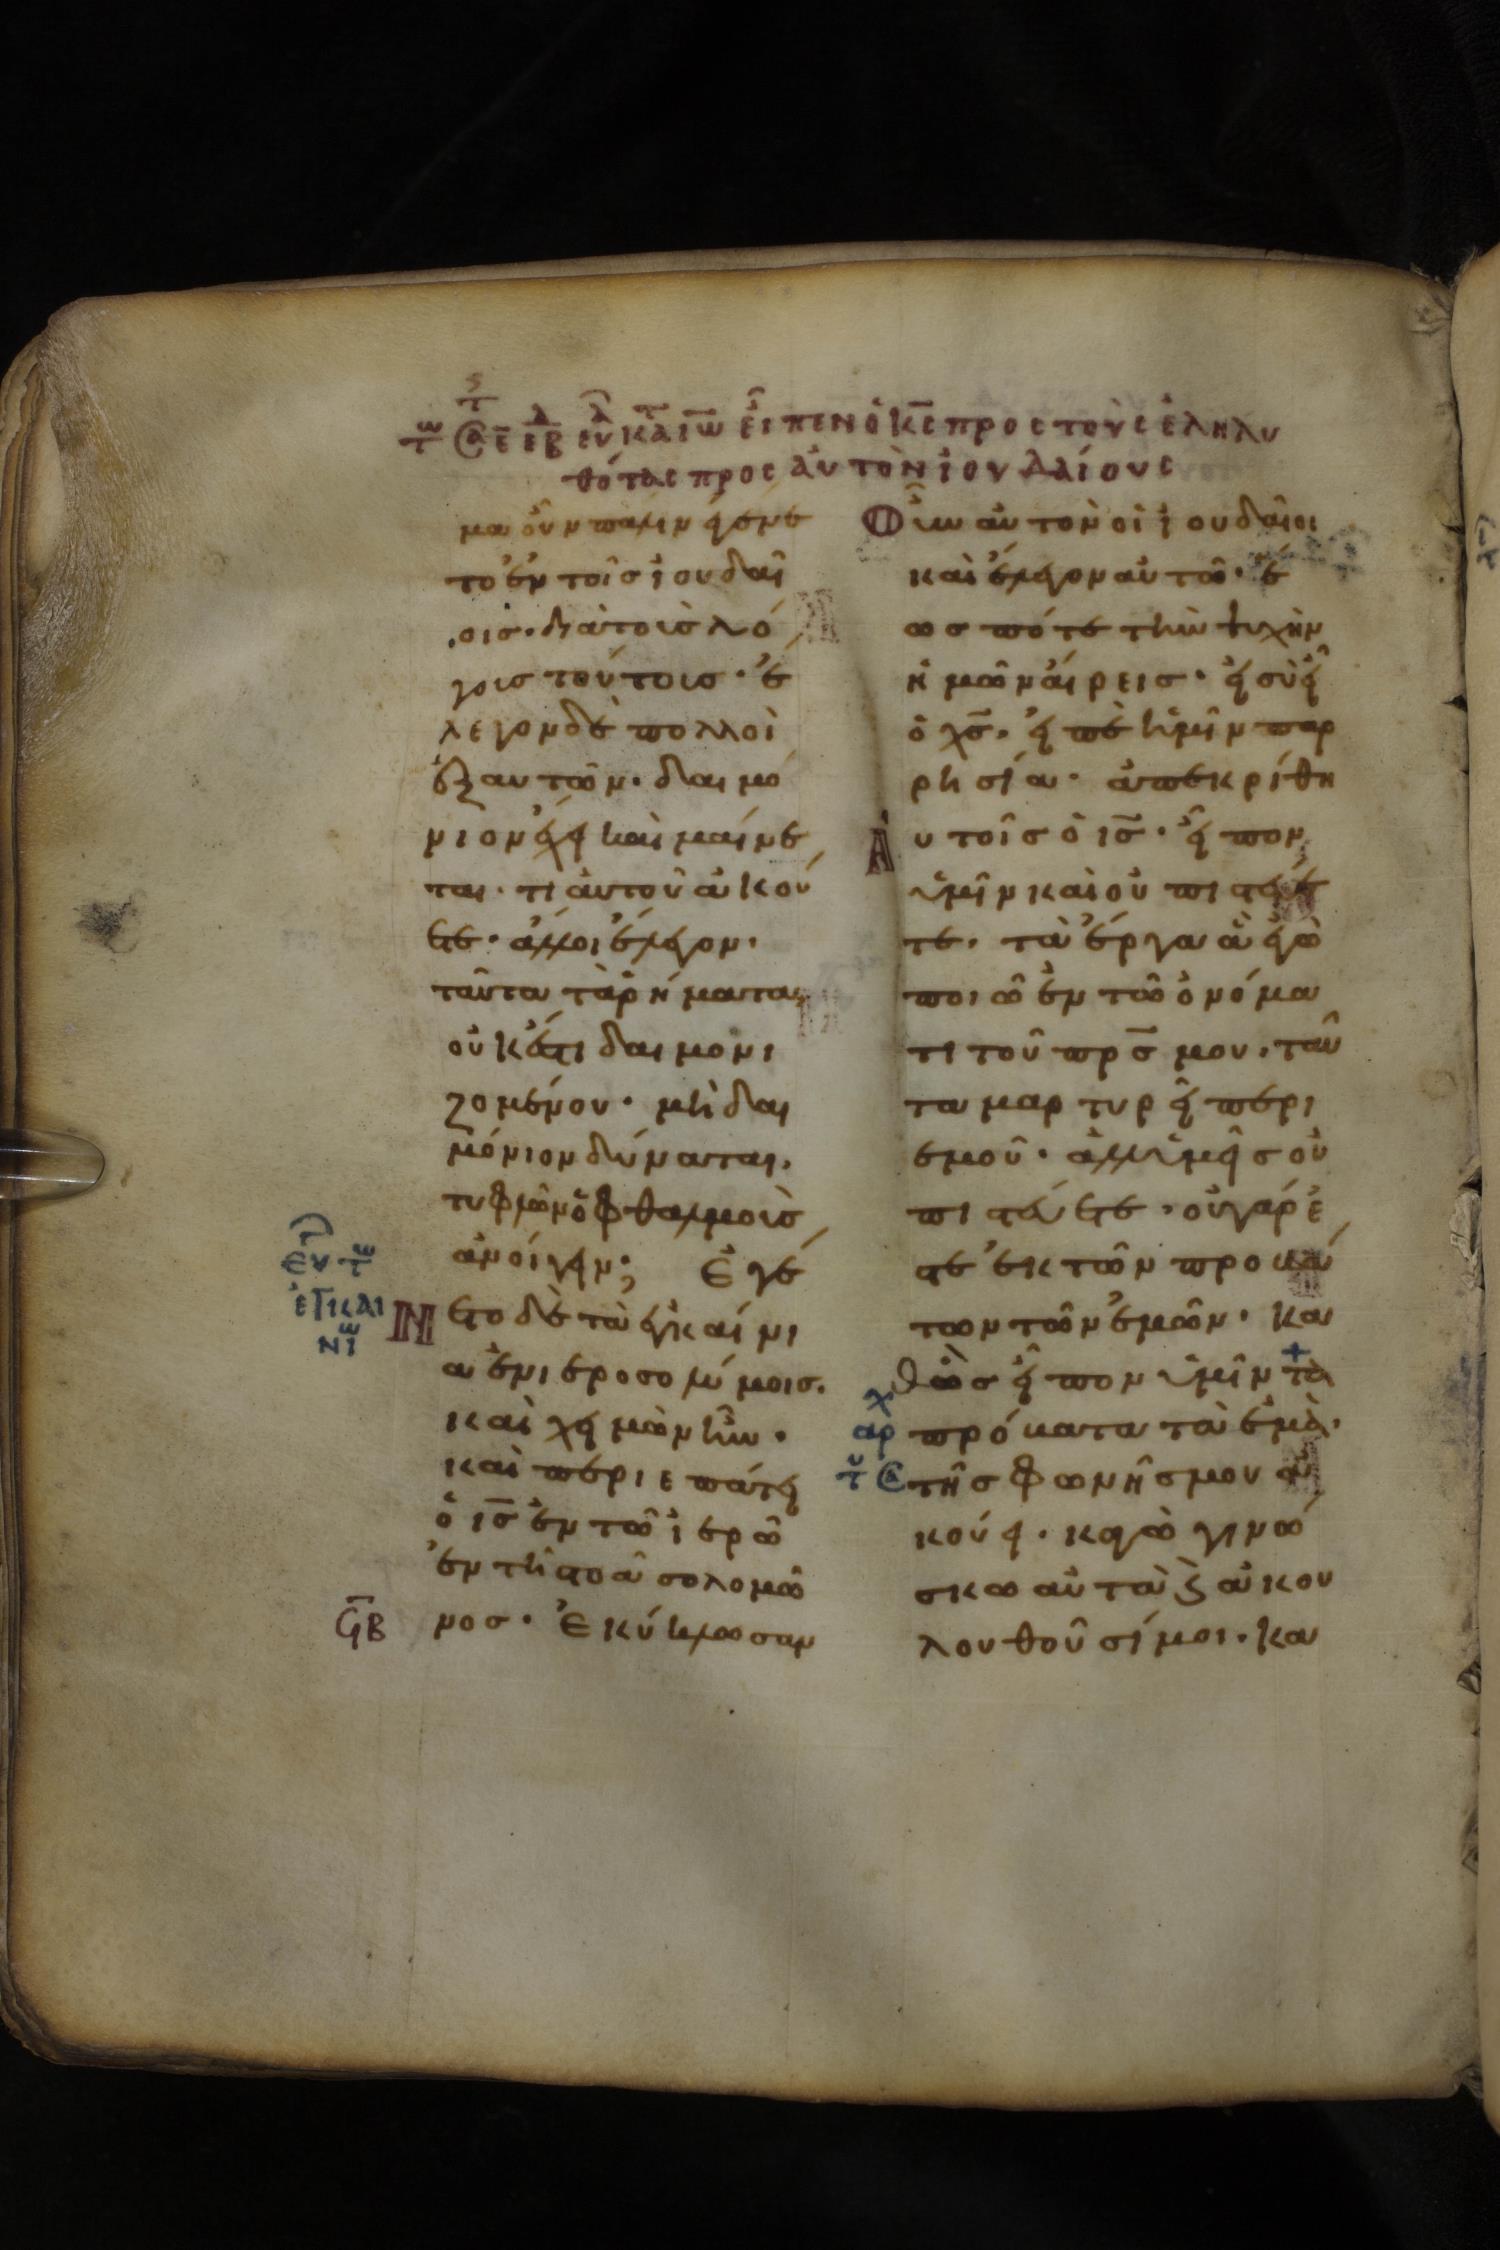 τω Σα ε εβ ευ κατ ιω εἶπεν ὁ κς προς τοὺς ἐληλυ
θότας προς αὐτὸν ἰουδαίους
μα οὖν πάλιν ἐγένε
το ἐν τοῖσ ἰουδαί
οισ· διὰ τοὺσ λό
γουσ τούτουσ· ἔ
λεγον δὲ πολλοὶ
ἐξ αυτῶν· δαιμό
νιον ἔχει καὶ μαίνε
ται· τί αὐτοῦ ἀκού
ετε· ἄλλοι ἔλεγον·
ταῦτα τὰ ῥήματα
οὐκ ἔστι δαιμονι
ζομένου· μὴ δαι
μόνιον δύναται
τυφλῶν ὀφθαλμοὺσ
ἀνοίγειν; Ἐγέ
ευ τω
ἐγκαι
νι
Νετο δὲ τὰ ἐγκαίνι
α ἐν ιεροσολύμοισ·
καὶ χειμὼν ἦν·
καὶ περιεπάτει
ὁ ις ἐν τῶ ἱερῶ
ἐν τῆ στοᾶ σολομῶ
νοσ· Ἐκύκλωσαν
οὖν αὐτὸν οἱ ἰουδαῖοι
καὶ ἔλεγον αὐτῶ· ἕ
ωσ πότε τὴν ψυχὴν
ἡμῶν αἴρεισ· εἰ σὺ εἶ
ὁ χσ· εἰπὲ ἡμῖν παρ
ρησία· ἀπεκρίθη
Ἀυτοῖσ ὁ ισ· εἶπον
ὑμῖν καὶ οὐ πιστεύε
τε· τὰ ἔργα ἃ ἐγὼ
ποιῶ ἐν τῶ ὀνόμα
τι τοῦ πρσ μου· ταῦ
τα μαρτυρεῖ περι
εμοῦ· ἀλλ ὑμεῖσ οὐ
πιστεύετε· οὐ γάρ ἐ
στε ἐκ τῶν προβά
των τῶν ἐμῶν· κα
θὼσ εἶπον ὑμῖν τὰ
αρχ πρόβατα τὰ ἐμὰ·
τῆσ φωνῆσ μου ἀ
κούει· καγὼ γινώ
σκω αὐτὰ ϗ ἀκου
λουθοῦσί μοι· κα